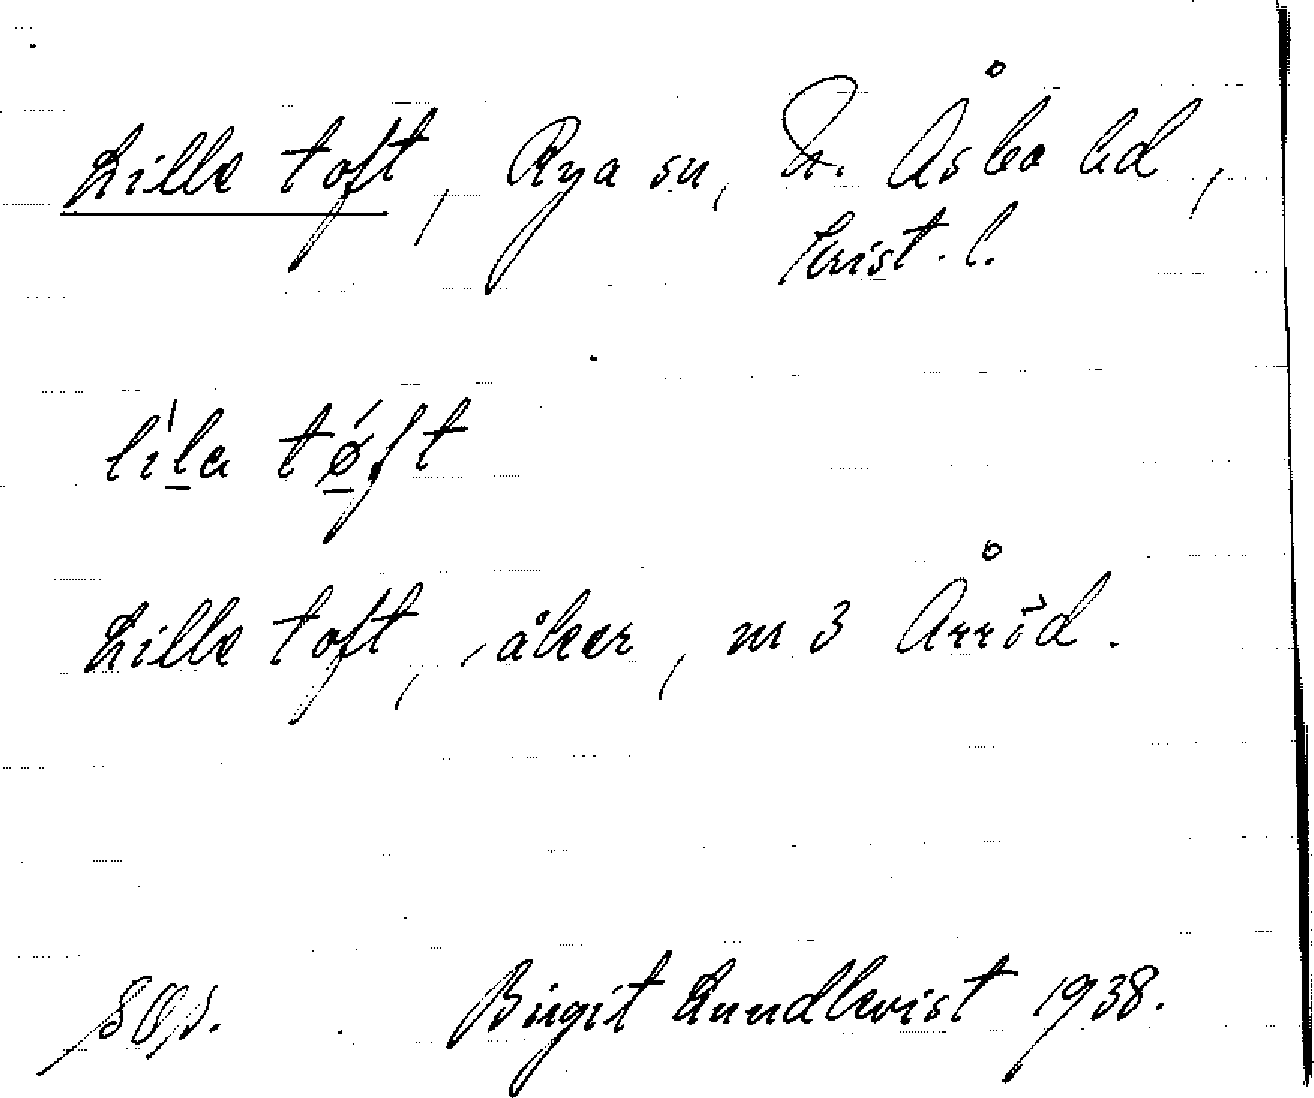 Lille toft, Rya sn, N. Åsbo hd,
Krist. l.
lila tøft
Lille toft, åker, nr 3 Årröd.
Birgit Lundkvist 1938.